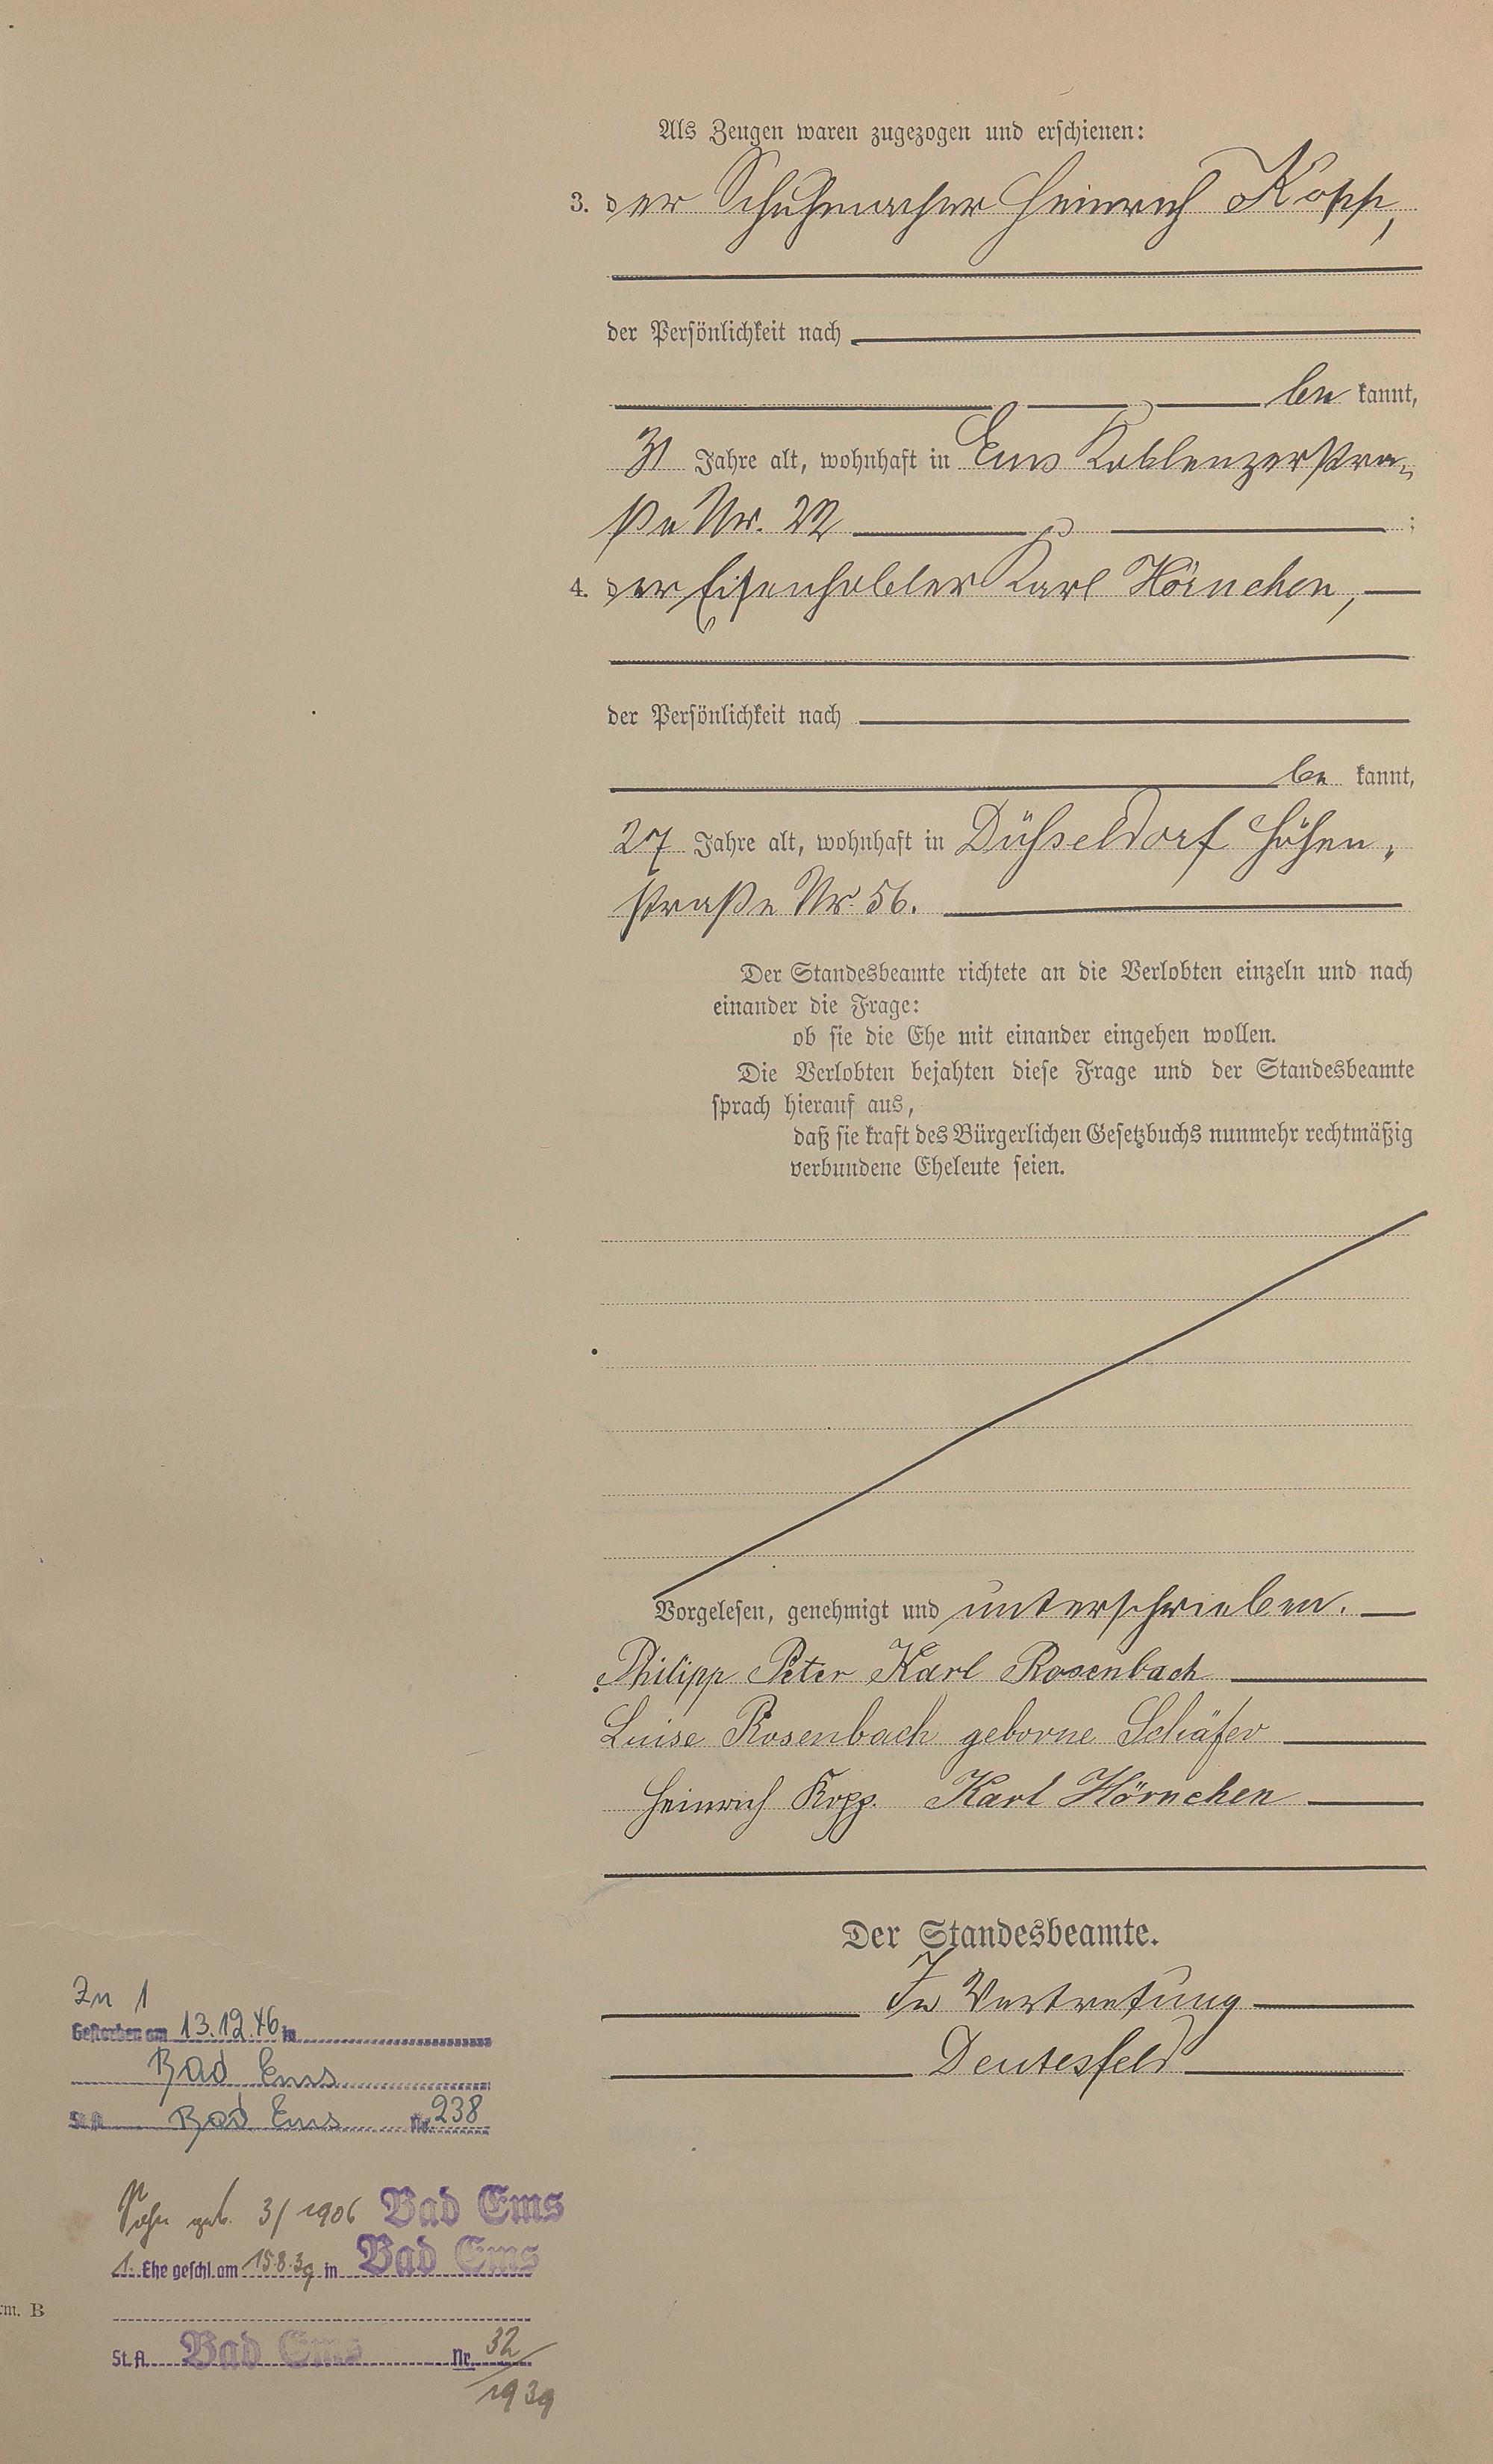 Als Zeugen waren zugezogen und erschienen:
3. der Schuhmacher Heinrich Kopp,
der Persönlichkeit nach
be kannt,
31 Jahre alt, wohnhaft in Ems Koblenzerstra-
ße Nr. 22 ;
4. der Karl Hörnchen,
der Persönlichkeit nach
be kannt,
27 Jahre alt, wohnhaft in Düsseldorf Höhen-
straße Nr. 56.
Der Standesbeamte richtete an die Verlobten einzeln und nach
einander die Frage:
ob sie die Ehe mit einander eingehen wollen.
Die Verlobten bejahten diese Frage und der Standesbeamte
sprach hierauf aus,
daß sie kraft des Bürgerlichen Gesetzbuchs nunmehr rechtmäßig
verbundene Eheleute seien.
Vorgelesen, genehmigt und unterschrieben.
Philipp Peter Karl Rosenbach
Luise Rosenbach geborne Schäfer
Heinrich Kopp. Karl Hörnchen
Der Standesbeamte.
In Vertretung
Deutesfeld
Zu 1
Gestorben am 13.12.46 in
Bad Ems
St.A. Bad Ems Nr. 238
Sohn geb. 3/1906 Bad Ems
1. Ehe geschl. am 15.8.39 in Bad Ems
rm. B
St. A. Bad Ems Nr. 32/
1939